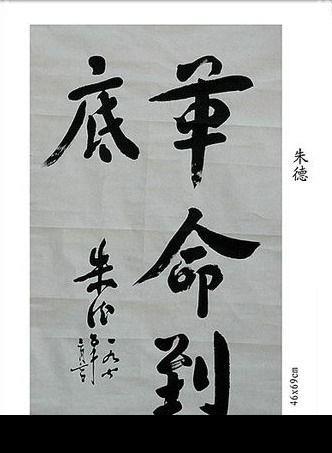 革命到
底
朱德
一九七
五年
朱德
46x69cm